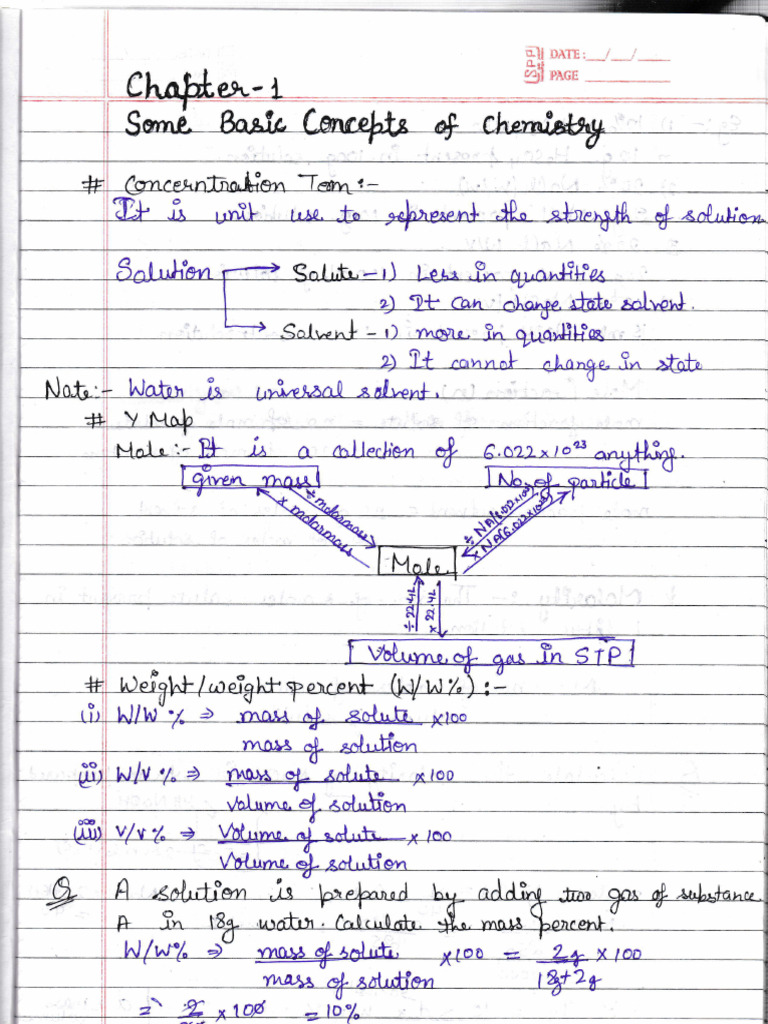 SPP DATE: __/__/__
PAGE ________
Chapter-1
Some Basic Concepts of Chemistry
# Concerntration Tem:-
It is unit use to represent the strength of solution.
Solution → Solute - 1) Less in quantities
2) It can change state solvent.
→ Solvent - 1) more in quantities
2) It cannot change in state
Note:- Water is universal solvent.
# Y Map
Mole:- It is a collection of 6.022×10²³ anything.
Given mass
No. of particle
÷ molarmass
× molarmass
÷ NA(6.022×10²³)
× NA(6.022×10²³)
Mole
÷ 22.4L
× 22.4L
Volume of gas in STP
# Weight/weight percent (W/W%):-
(i) W/W % ⇒ mass of solute ×100
mass of solution
(ii) W/V % ⇒ mass of solute ×100
volume of solution
(iii) V/V % ⇒ Volume of solute ×100
Volume of solution
Q A solution is prepared by adding two gas of substance
A in 18g water. Calculate the mass percent.
W/W% ⇒ mass of solute ×100 = 2g ×100
mass of solution 18g+2g
= 2 × 100 = 10%